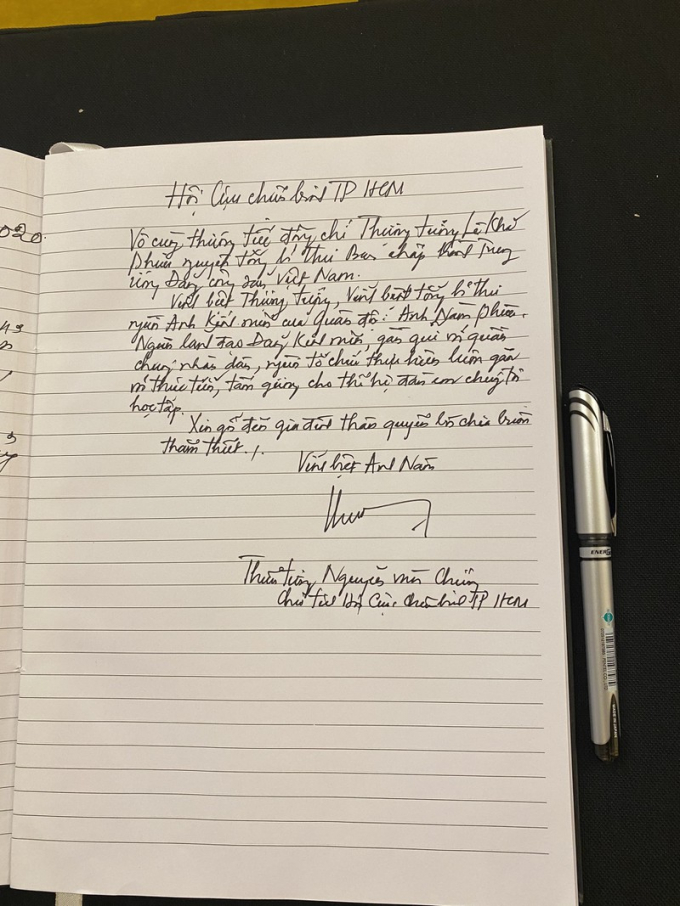 020.
Hội Cựu chiến binh TP HCM
Vô cùng thương tiếc đồng chí Thượng tướng Lê Khả
Phiêu nguyên tổng bí thư Ban chấp hành Trung
ương Đảng cộng sản Việt Nam.
Vĩnh biệt Thượng tướng, Vĩnh biệt tổng bí thư
người Anh kính mến của Quân đội: Anh Năm phiêu.
Người lãnh đạo Đảng kính mến, gần gũi với quần
chúng nhân dân, người tổ chức thực hiện luôn gắn
với thực tiễn, tấm gương cho thế hệ đàn em chúng tôi
học tập.
Xin gởi đến gia đình thân quyến lời chia buồn
thắm thiết./.
Vĩnh biệt Anh Năm
Nguyễn văn Chương
Chủ tịch Hội Cựu chiến binh TP HCM
ENER